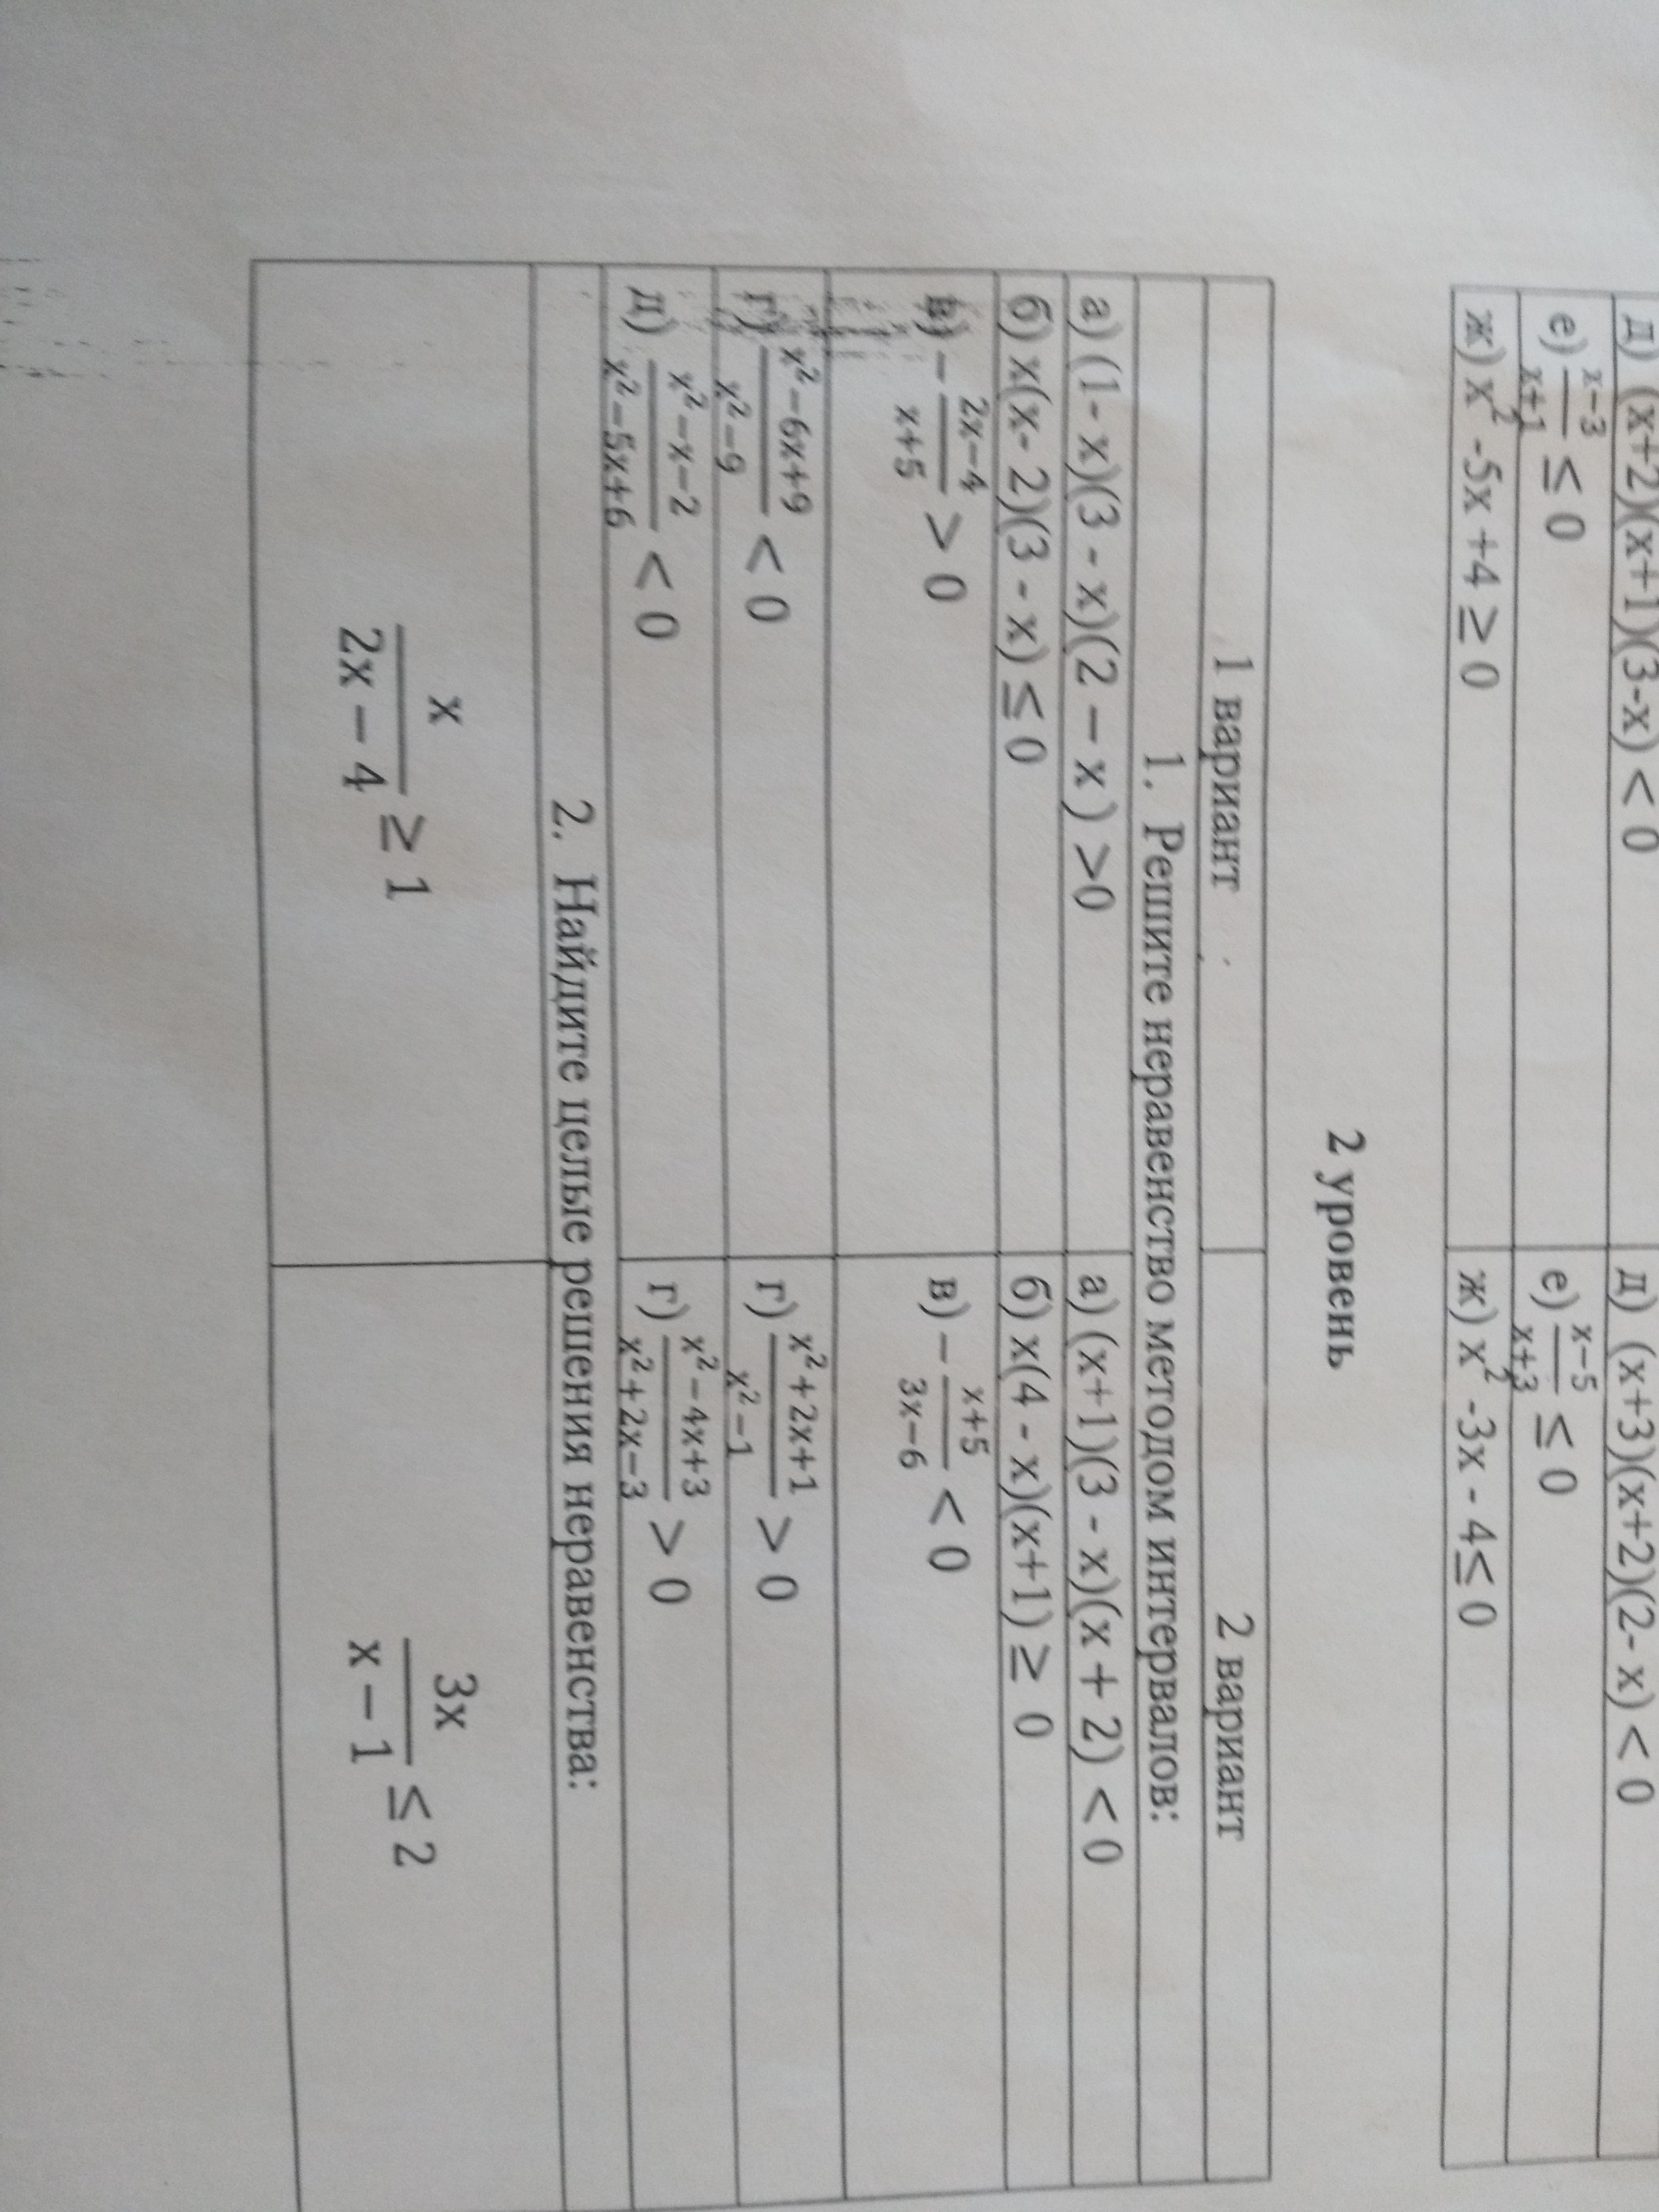 д) (x+2)(x+1)(3-x) < 0
д) (x+3)(x+2)(2- x) < 0
е) \frac{x−3}{x+1} ≤ 0
е) \frac{x−5}{x+3} ≤ 0
ж) x² -5x +4 ≥ 0
ж) x² -3x - 4≤ 0
2 уровень
1 вариант
2 вариант
1. Решите неравенство методом интервалов:
а) (1- x)(3 - x)(2 − x) >0
а) (x+1)(3 - x)(x + 2) < 0
б) x(x- 2)(3 - x) ≤ 0
б) x(4 - x)(x+1) ≥ 0
в) − \frac{2x−4}{x+5} > 0
в) − \frac{x+5}{3x−6} < 0
г) \frac{x²−6x+9}{x²−9} < 0
г) \frac{x²+2x+1}{x²−1} > 0
д) \frac{x²−x−2}{x²−5x+6} < 0
г) \frac{x²−4x+3}{x²+2x−3} > 0
2. Найдите целые решения неравенства:
\frac{x}{2x − 4} ≥ 1
\frac{3x}{x − 1} ≤ 2